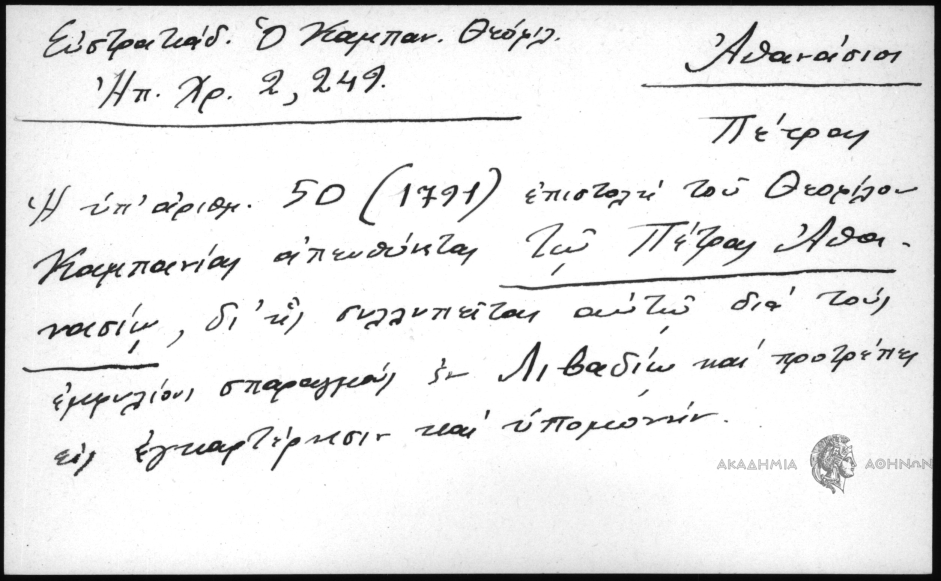 Εὐστρατιάδ. Ὁ Καμπαν. Θεόφιλ.
Ἠπ. Χρ. 2, 249.
Ἀθανάσιος
Πέτρας
Ἡ ὑπ' ἀριθμ. 50 (1791) ἐπιστολὴ τοῦ Θεοφίλου
Καμπανίας ἀπευθύνεται τῷ Πέτρας Ἀθα-
νασίῳ, δι' ἧς συλλυπεῖται αὐτῷ διὰ τοὺς
ἐμφυλίους σπαραγμοὺς ἐν Λιβαδίῳ καὶ προτρέπει
εἰς ἐγκαρτέρησιν καὶ ὑπομονήν.
ΑΚΑΔΗΜΙΑ ΑΘΗΝΩΝ